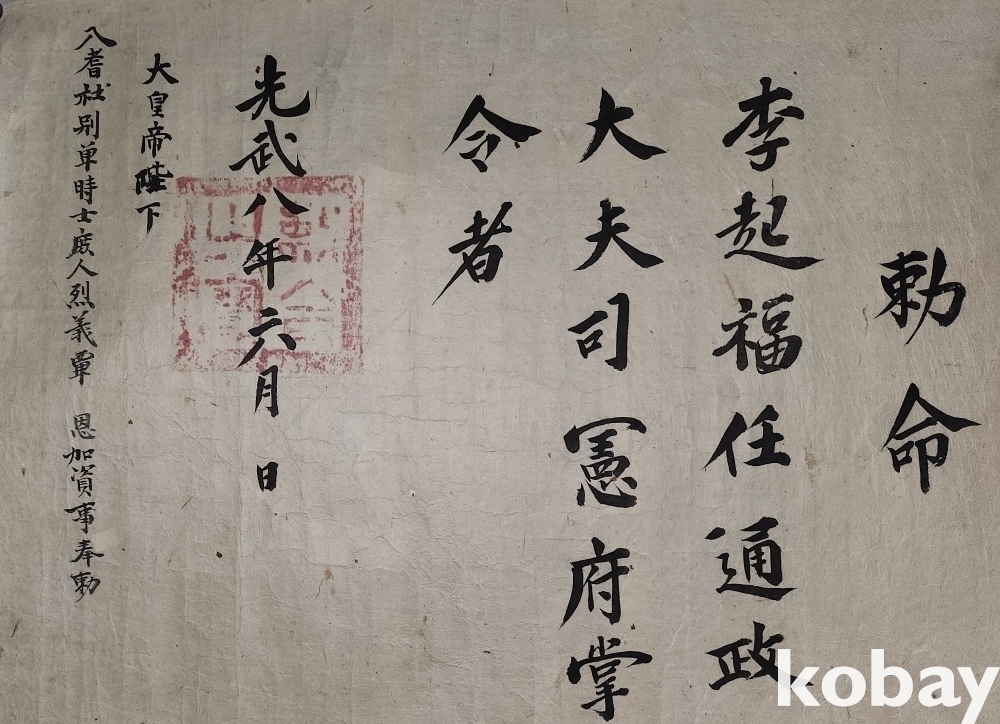 勅命
李起福任通政
大夫司憲府掌
令者
光武八年六月 日
大皇帝陛下
八耆社別単時士庶人烈義覃 恩加資事奉勅
kobay